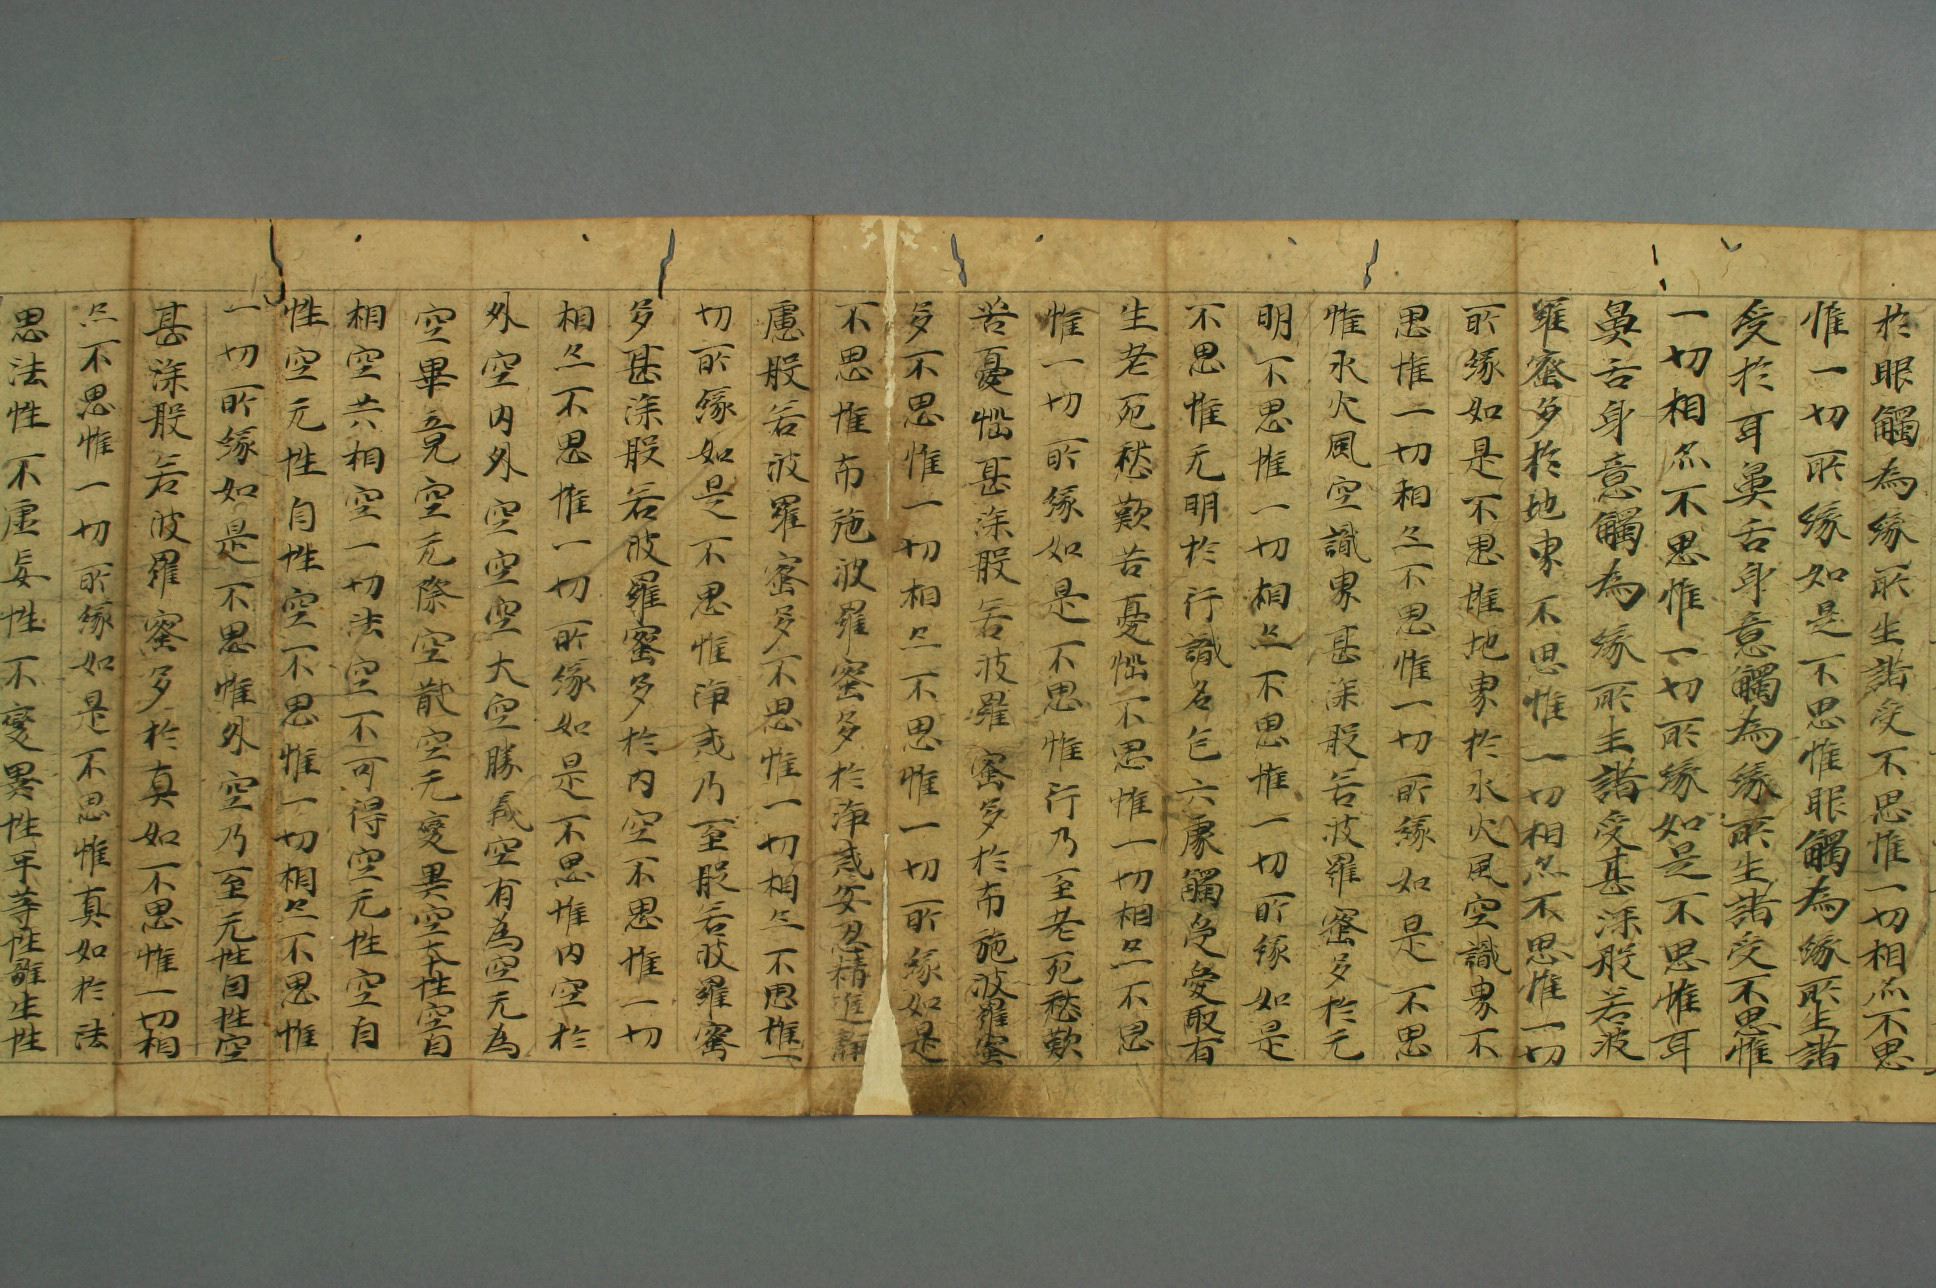 於眼觸為緣所生諸受不思惟一切相亦不思
惟一切所緣如是不思惟眼觸為緣所生諸
受於耳鼻舌身意觸為緣所生諸受不思惟
一切相亦不思惟一切所緣如是不思惟耳
鼻舌身意觸為緣所生諸受甚深般若波
羅蜜多於地界不思惟一切相亦不思惟一切
所緣如是不思惟地界於水火風空識界不
思惟一切相亦不思惟一切所緣如是不思
惟水火風空識界甚深般若波羅蜜多於无
明不思惟一切相亦不思惟一切所緣如是
不思惟无明於行識名色六處觸受愛取有
生老死愁歎苦憂惱不思惟一切相亦不思
惟一切所緣如是不思惟行乃至老死愁歎
苦憂惱甚深般若波羅蜜多於布施波羅蜜
多不思惟一切相亦不思惟一切所緣如是
不思惟布施波羅蜜多於淨戒安忍精進靜
慮般若波羅蜜多不思惟一切相亦不思惟一
切所緣如是不思惟淨戒乃至般若波羅蜜
多甚深般若波羅蜜多於內空不思惟一切
相亦不思惟一切所緣如是不思惟內空於
外空內外空空空大空勝義空有為空无為
空畢竟空无際空散空无變異空本性空自
相空共相空一切法空不可得空无性空自
性空无性自性空不思惟一切相亦不思惟
一切所緣如是不思惟外空乃至无性自性空
甚深般若波羅蜜多於真如不思惟一切相
亦不思惟一切所緣如是不思惟真如於法
思法性不虛妄性不變異性平等性離生性